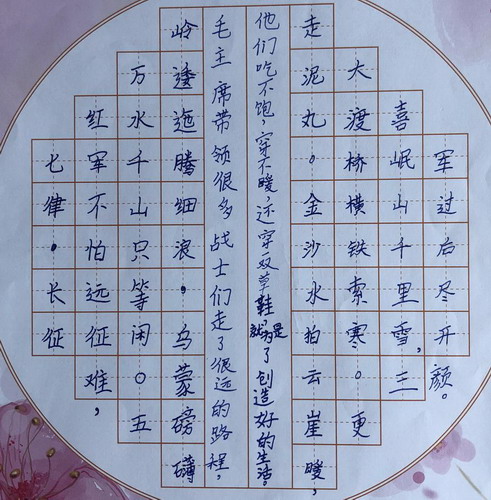 七律·长征
红军不怕远征难，
万水千山只等闲。五
岭逶迤腾细浪，乌蒙磅礴
毛主席带领很多战士们走了很远的路程，
他们吃不饱，穿不暖，还穿双草鞋，就是为了创造好的生活。
走泥丸。金沙水拍云崖暖，
大渡桥横铁索寒。更
喜岷山千里雪，三
军过后尽开颜。